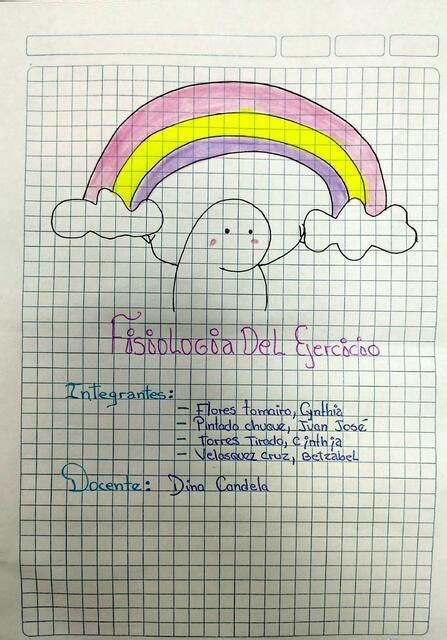 Fisiología Del Ejercicio
Integrantes:
- Flores tamairo, Cynthia
- Pintado chuque, Juan José
- Torres Tirado, Cinthia
- Velasquez Cruz, Betzabel
Docente: Dina Candela